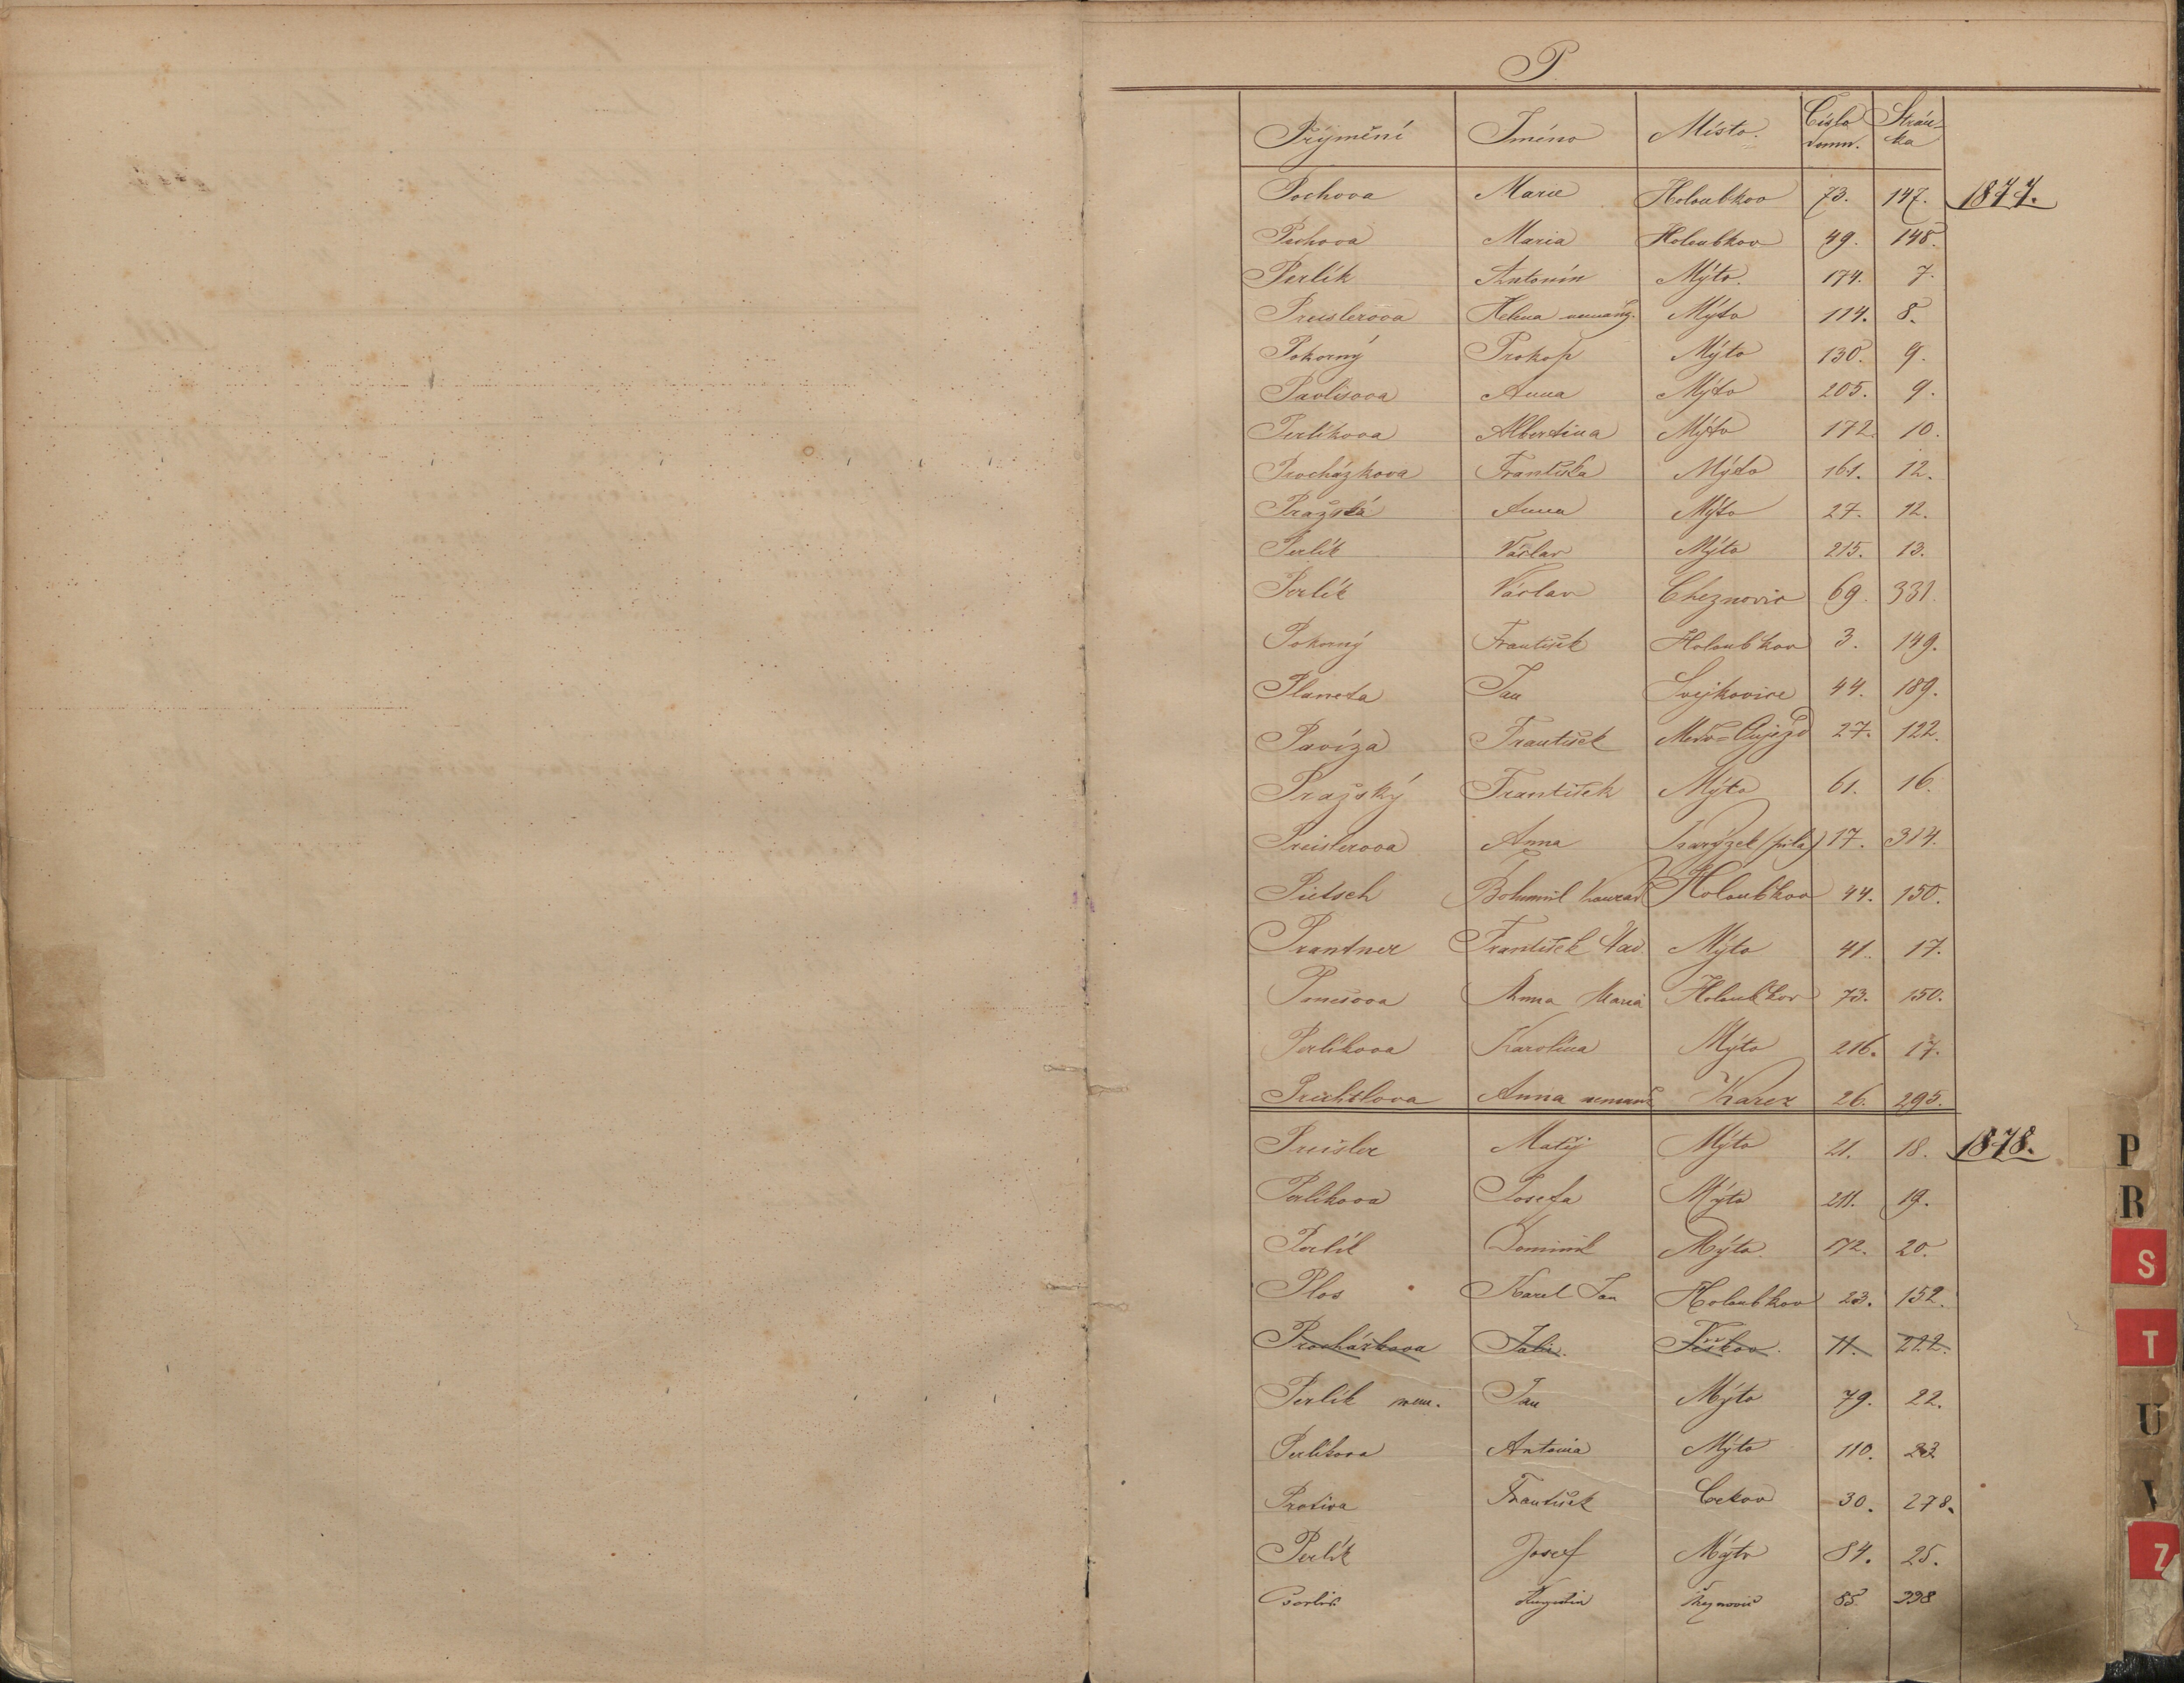 P.
Přijmění Jméno Místo. Číslo domu. Stránka
Pochova Marie Holoubkov 73. 147. 1877.
Pechova Maria Holoubkov 49. 148.
Perlík Antonín Mýto. 174. 7.
Preislerova Helena nemanž. Mýto 114. 8.
Pokorný Prokop Mýto 130. 9.
Pavlisova Anna Mýto 205. 9.
Perlíkova Albertina Mýto 172. 10.
Procházkova Františka Mýto 161. 12.
Pražská Anna Mýto 27. 12.
Perlík Václav Mýto 215. 13.
Perlík Václav Cheznovic 69. 331.
Pokorný František Holoubkov 3. 149.
Planeta Jan Svejkovice 44. 189.
Pavíza František Medo=Oujezd 27. 122.
Pražský František Mýto 61. 16.
Preislerova Anna Karýzek (pila) 17. 314.
Pietsch Bohumil Konrad Holoubkov 44. 150.
Prantner František Mýto 41. 17.
Anna Maria Holoubkov 73. 150.
Perlíkova Karolina Mýto 216. 17.
Anna nemanž. Karez 26. 295.
Preisler Matěj Mýto 21. 18. 1878.
Perlíkova Josefa Mýto 211. 19.
Perlík Dominik Mýto. 172. 20.
Plos Karel Jan Holoubkov 23. 152.
Procházkova Julie. Těškov. 11. 222.
Perlík nem. Jan Mýto 79. 22.
Perlíkova Antonia Mýto 110. 23.
Protiva František Cekov 30. 278.
Perlík Josef Mýto 84. 25.
Augustin 85. 338
P
R
S
T
U
V
Z